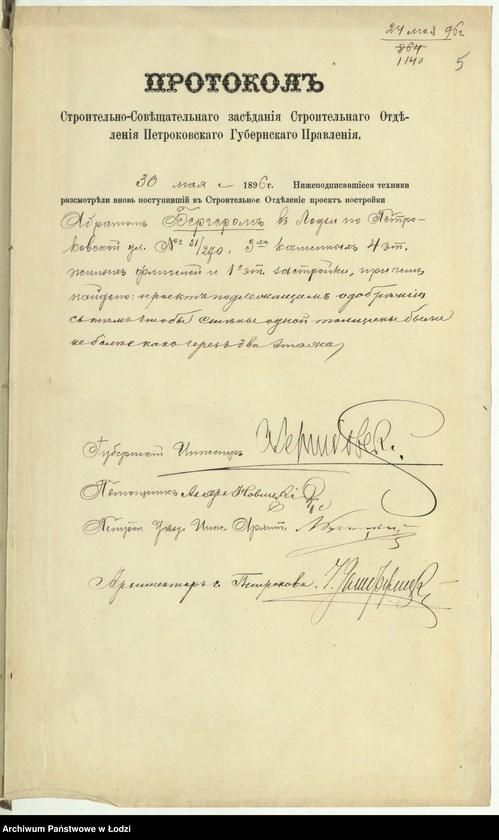 24 мая 96 г
864
1140
5
ПРОТОКОЛЪ
Строительно-Совѣщательнаго засѣданія Строительнаго Отдѣ-
ленія Петроковскаго Губернскаго Правленія.
30 мая 1896 г. Нижеподписавшіеся техники
разсмотрѣли вновь поступившій въ Строительное Отдѣленіе проектъ постройки
въ Лодзи по Петро-
ковской ул. № 21/270. 3хъ каменныхъ 4 эт.
жилыхъ флигелей и 1о эт. застройки, причемъ
найдено: проектъ подлежащимъ одобренію
съ тѣмъ чтобы стѣны одной толщины были
не болѣе какъ черезъ два этажа
Губернскій Инженеръ
Помощникъ
Архитекторъ г. Петрокова.
Archiwum Państwowe w Łodzi